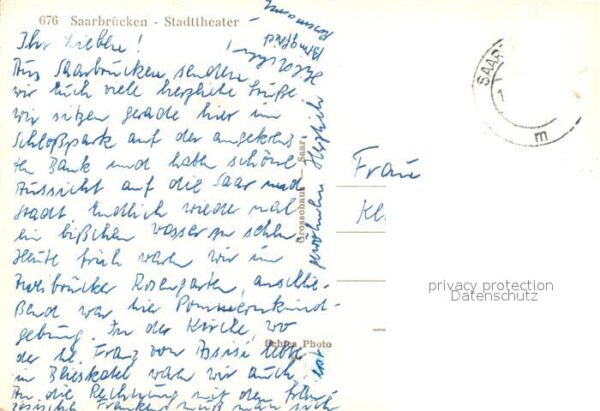 676 Saarbrücken - Stadttheater
Ihr Lieben!
Aus Saarbrücken senden
wir Euch viele herzliche Grüße
wir sitzen gerade hier im
Schloßpark auf der
Bank und haben schöne
Aussicht auf die Saar und
Stadt. Endlich wieder mal
ein bißchen wasser zu sehen.
Heute früh waren wir im
Zweibrücker Rosengarten, anschlie-
ßend war hier Pommernkund-
gebung. In der Kirche, wo
der hl. Franz von Assisi lebte
in Blieskatel waren wir auch.
An die Rechnung mit den Franzö-
sischen Franken muß man sich
Herzlich
Grosschaus — Saar
Echtes Photo
Frau
Kl
SAAR
m
privacy protection
Datenschutz